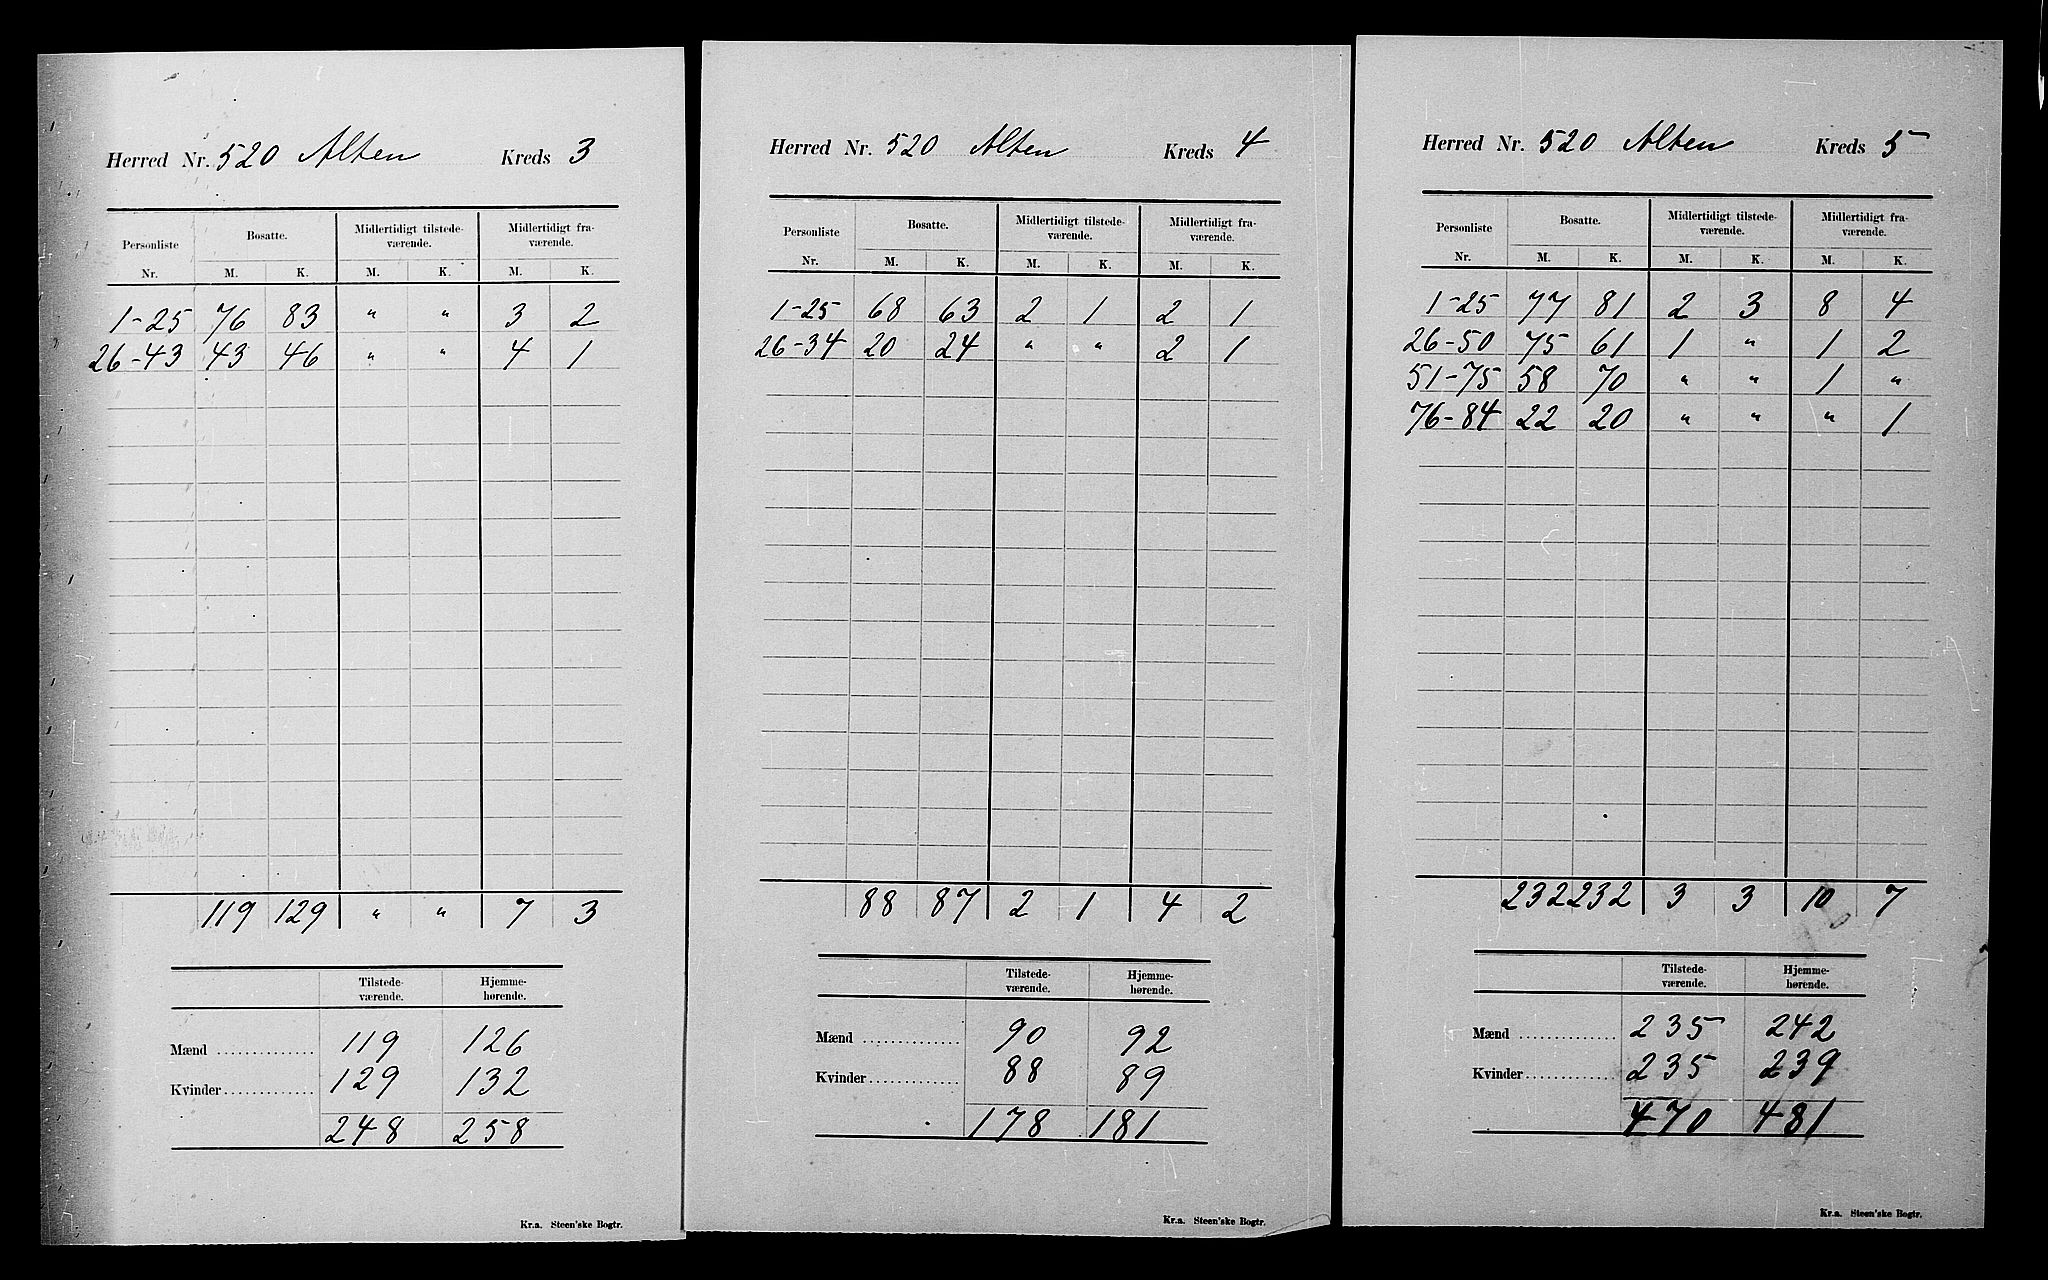 Herred Nr. 520 Alten Kreds 3
Personliste Bosatte. Midlertidigt tilstede- Midlertidigt fra-
værende. værende.
Nr. M. K. M. K. M. K.
1-25 76 83 " " 3 2
26-43 43 46 " " 4 1
119 129 " " 7 3
Tilstede- Hjemme-
værende. hørende.
Mænd .............. 119 126
Kvinder ............. 129 132
248 258
Kr.a. Steen'ske Bogtr.
Herred Nr. 520 Alten Kreds 4
Personliste Bosatte. Midlertidigt tilstede- Midlertidigt fra-
værende. værende.
Nr. M. K. M. K. M. K.
1-25 68 63 2 1 2 1
26-34 20 24 " " 2 1
88 87 2 1 4 2
Tilstede- Hjemme-
værende. hørende.
Mænd .............. 90 92
Kvinder ............. 88 89
178 181
Kr.a. Steen'ske Bogtr.
Herred Nr. 520 Alten Kreds 5
Personliste Bosatte. Midlertidigt tilstede- Midlertidigt fra-
værende. værende.
Nr. M. K. M. K. M. K.
1-25 77 81 2 3 8 4
26-50 75 61 1 " 1 2
51-75 58 70 " " 1 "
76-84 22 20 " " " 1
232 232 3 3 10 7
Tilstede- Hjemme-
værende. hørende.
Mænd .............. 235 242
Kvinder ............. 235 239
470 481
Kr.a. Steen'ske Bogtr.